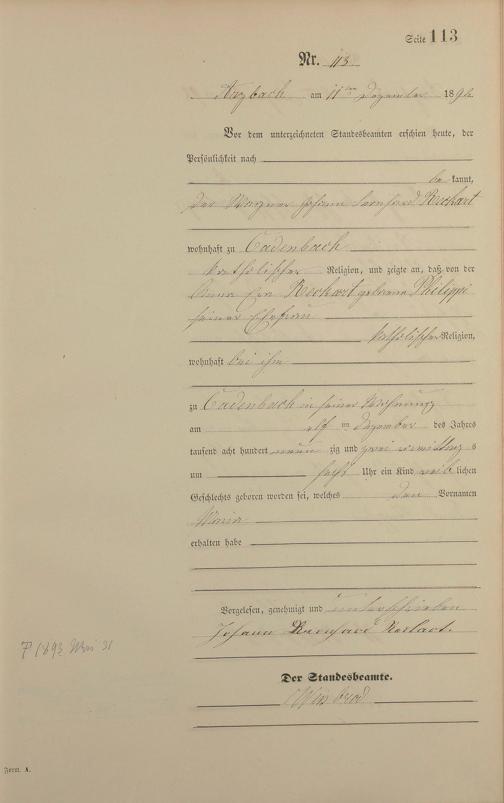 Seite 113
Nr. 113.
Arzbach am 11ten Dezember 1892
Vor dem unterzeichneten Standesbeamten erschien heute, der
Persönlichkeit nach
be kannt,
der Johann Bernhard Reckart
wohnhaft zu Cadenbach
katholischer Religion, und zeigte an, daß von der
Anna Eva Reckart geborene Philippi
seiner Ehefrau
katholischer Religion,
wohnhaft bei ihm
zu Cadenbach in seiner Wohnung
am elf ten Dezember des Jahres
tausend acht hundert neun zig und zwei Vormittag s
um sechs Uhr ein Kind weib lichen
Geschlechts geboren worden sei, welches den Vornamen
Maria
erhalten habe
Vorgelesen, genehmigt und unterschrieben
Johann Bernhard
Der Standesbeamte.
1893 Mai 31
Form. A.